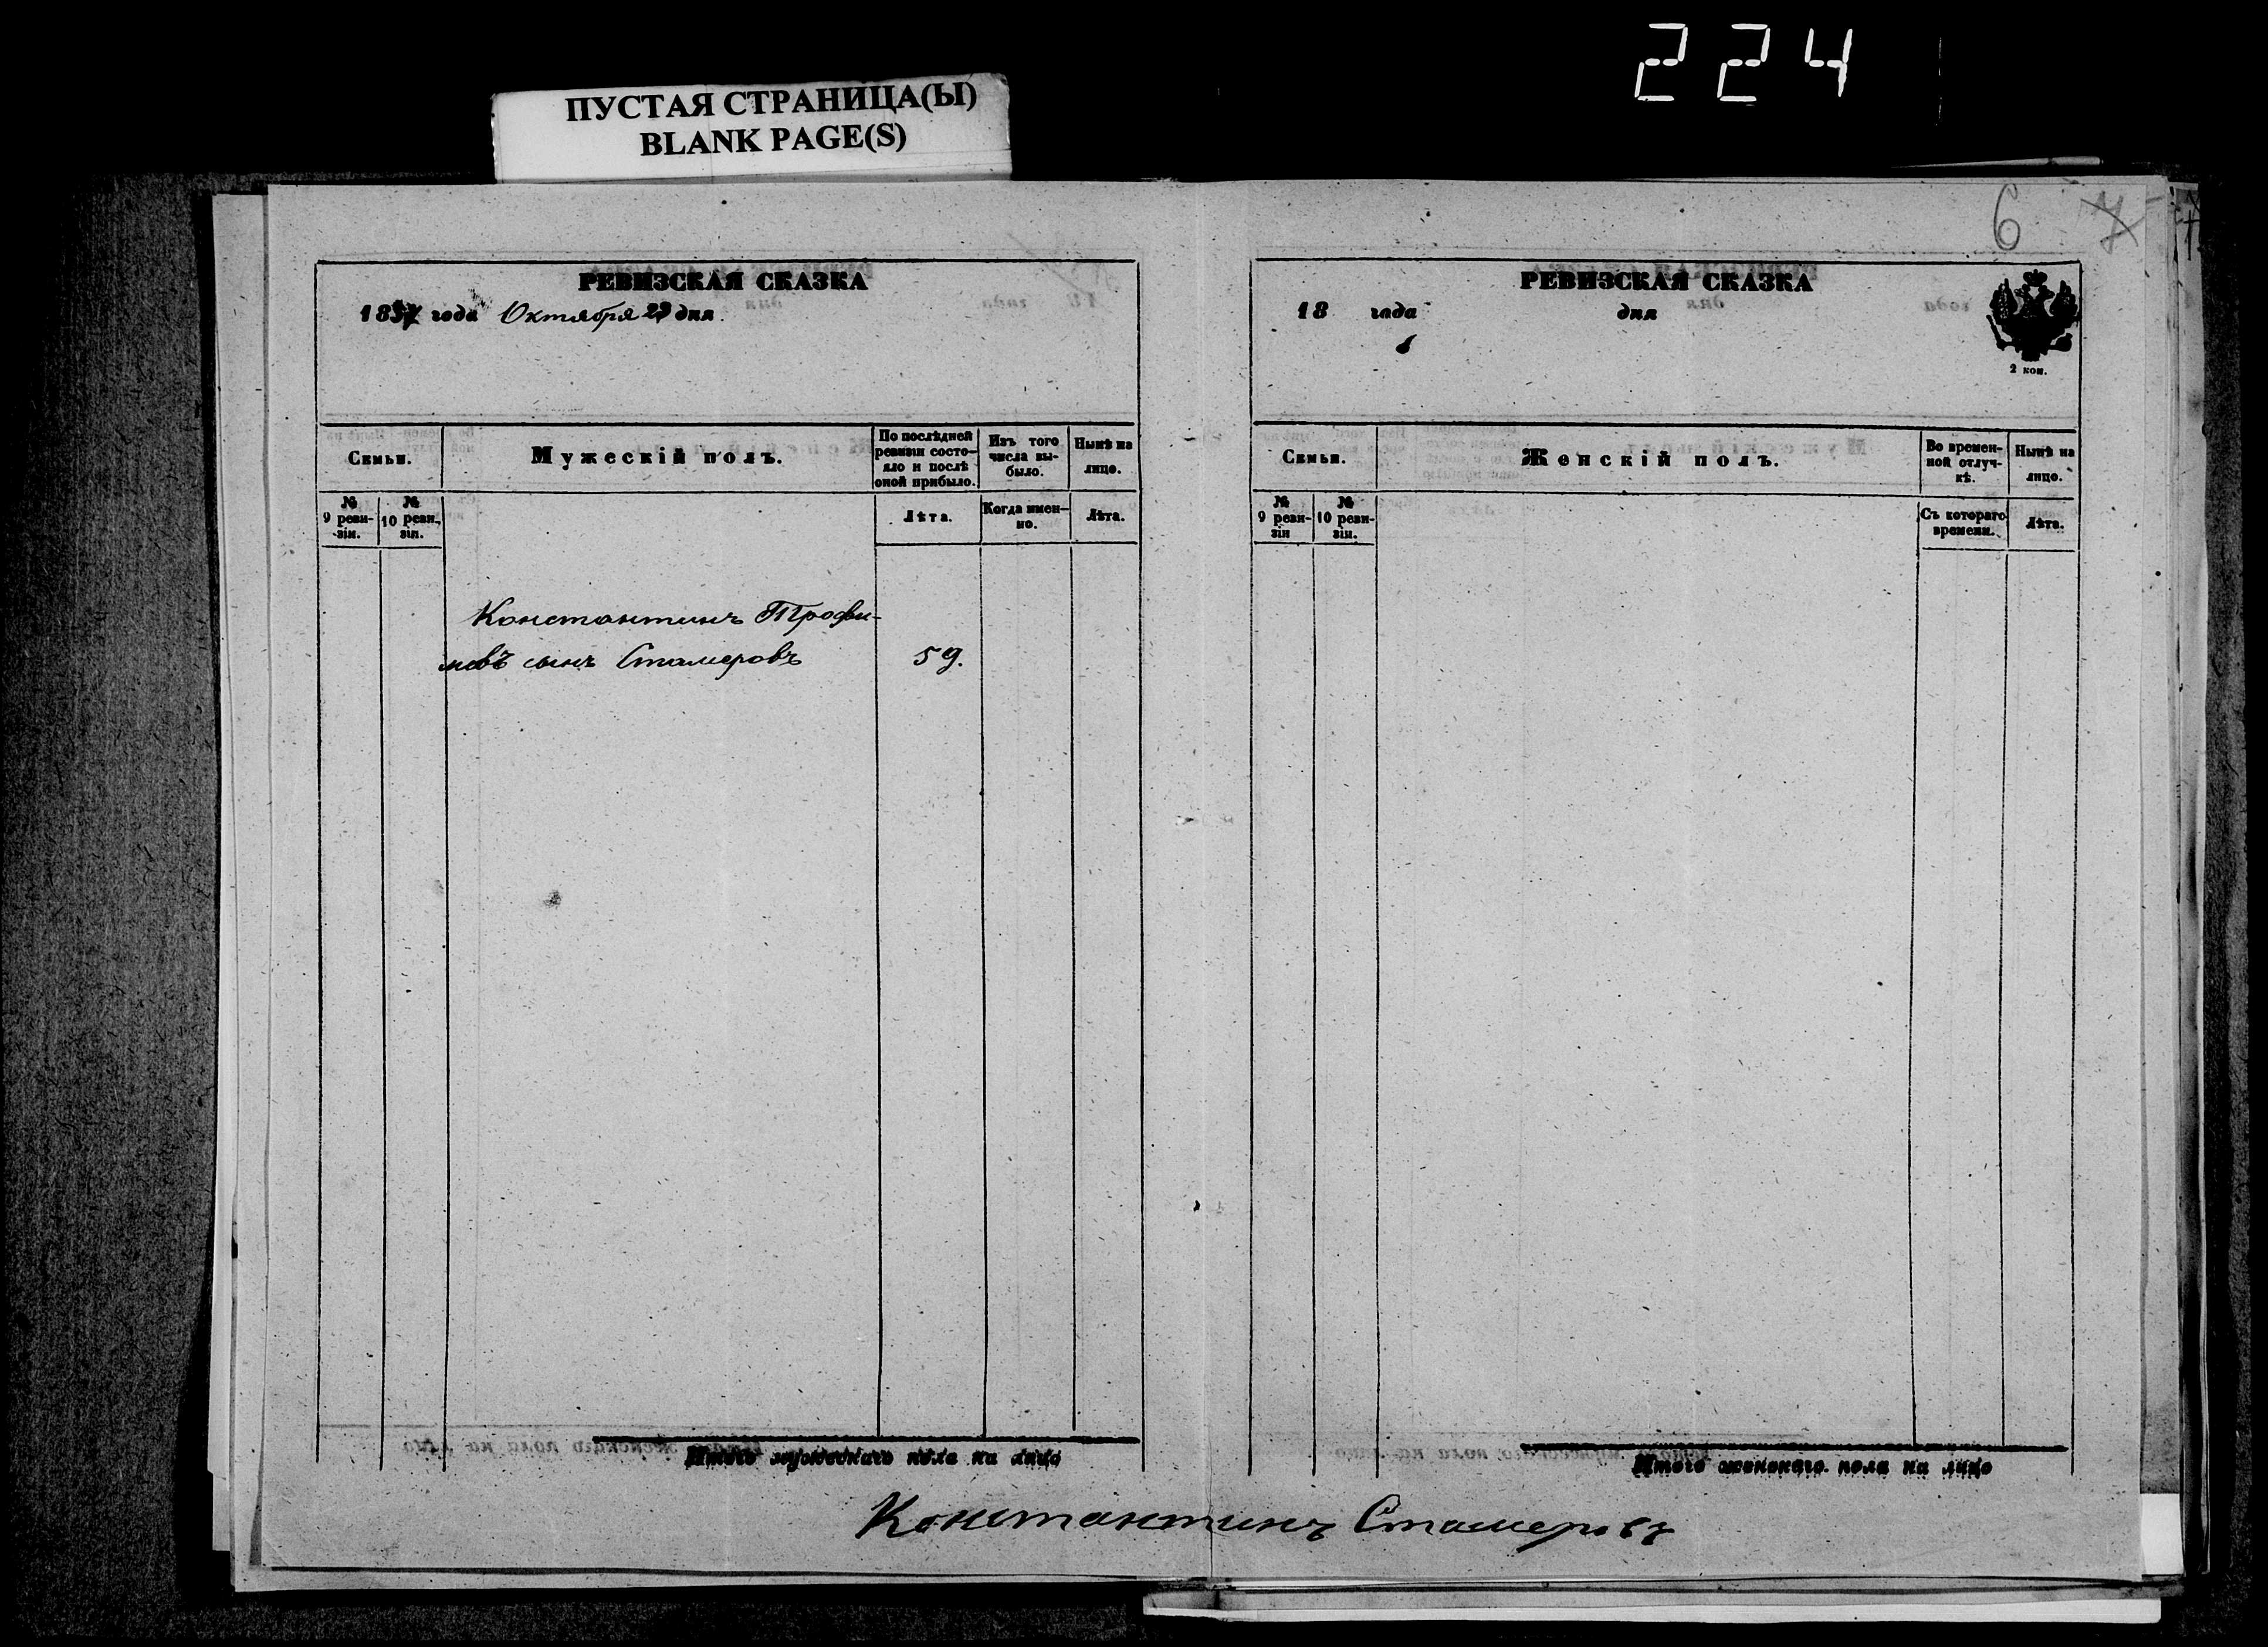 224
ПУСТАЯ СТРАНИЦА(Ы)
BLANK PAGE(S)
РЕВИЗСКАЯ СКАЗКА
1857 года Октября 29 дня
Семьи.
Мужескій полъ.
По послѣдней
ревизіи состо-
яло и послѣ
оной прибыло.
Изъ того
числа вы-
было.
Нынѣ на
лицо.
№
9 реви-
зіи.
№
10 реви-
зіи.
Лѣта.
Когда имен-
но.
Лѣта.
Константинъ Трофи-
мовъ сынъ Стамеровъ 59.
Итого мужескаго пола на лицо
6 7
РЕВИЗСКАЯ СКАЗКА
18 года дня
2 коп.
Семьи.
Женскій полъ.
Во времен-
ной отлуч-
кѣ.
Нынѣ на
лицо.
№
9 реви-
зіи
№
10 реви-
зіи.
Съ котораго
времени.
Лѣта.
Итого женскаго пола на лицо
Константинъ Стамеровъ